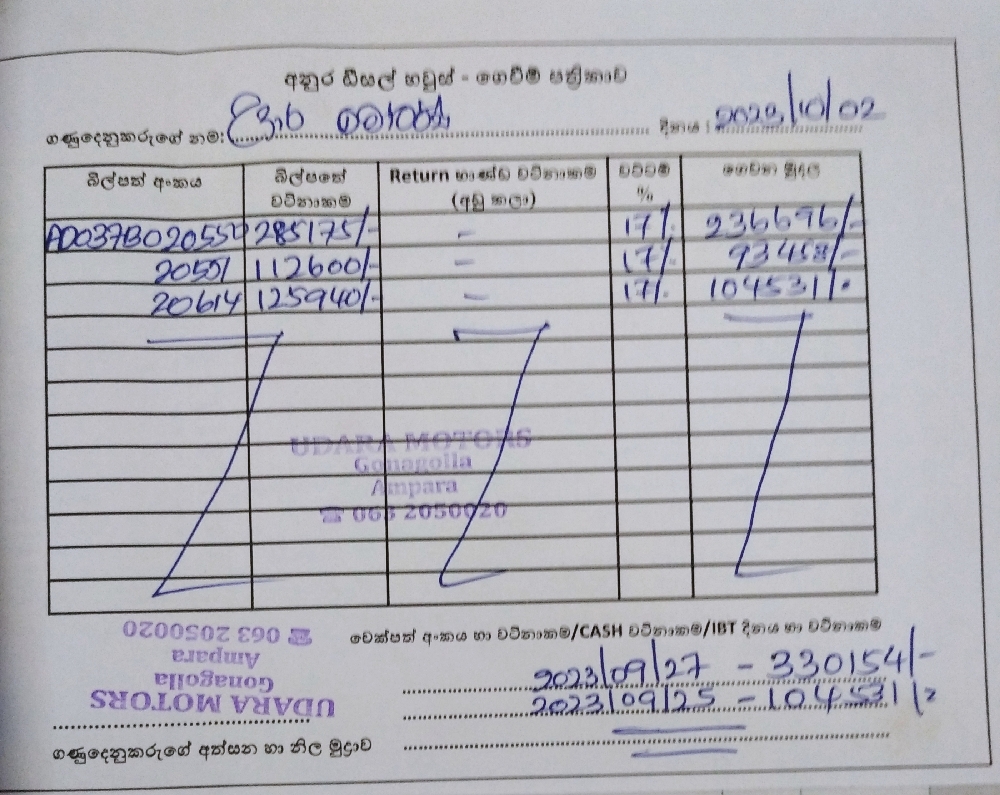 අනුර ඩීසල් හවුස් - ගෙවීම් පත්‍රිකාව
ගණුදෙනුකරුගේ නම: උදාර මෝටර්ස් දිනය : 2023/10/02
බිල්පත් අංකය බිල්පතේ වටිනාකම Return භාණ්ඩ වටිනාකම (අඩු කලා) වට්ටම් % ගෙවන මුදල
AD037B020550 285175/- - 17% 236696/-
20551 112600/- - 17% 93458/-
20614 125940/- - 17% 104531/-
UDARA MOTORS
Gonagolla
Ampara
☎ 063 2050020
චෙක්පත් අංකය හා වටිනාකම/CASH වටිනාකම/IBT දිනය හා වටිනාකම
2023/09/27 - 330154/-
2023/09/25 - 104531/-
UDARA MOTORS
Gonagolla
Ampara
☎ 063 2050020
ගණුදෙනුකරුගේ අත්සන හා නිල මුද්‍රාව